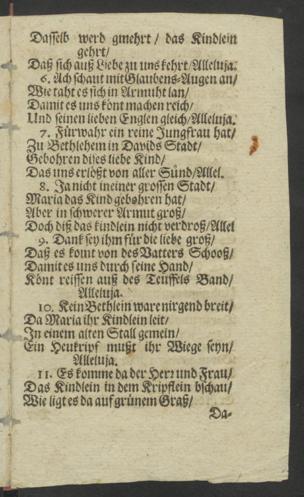 Dasselb werd gmehrt / das Kindlein
gehrt /
Daß sich auß Liebe zu uns kehrt / Alleluja.
6. Ach schaut mit Glaubens-Augen an /
Wie taht es sich in Armuht lan /
Damit es uns könt machen reich /
Und seinen lieben Englen gleich / Alleluja.
7. Fürwahr ein reine Jungfrau hat /
Zu Bethlehem in Davids Stadt /
Gebohren dises liebe Kind /
Das uns erlößt von aller Sünd / Allel.
8. Ja nicht in einer grossen Stadt /
Maria das Kind gebohren hat /
Aber in schwerer Armut groß /
Doch diß das kindlein nicht verdroß / Allel
9. Dank sey ihm für die liebe groß /
Daß es komt von des Vatters Schooß /
Damit es uns durch seine Hand /
Könt reissen auß des Teuffels Band /
Alleluja.
10. Kein Bethlein ware nirgend breit /
Da Maria ihr Kindlein leit /
In einem alten Stall gemein /
Ein Heukripf mußt ihr Wiege seyn /
Alleluja.
11. Es komme da der Herr und Frau /
Das Kindlein in dem Kripflein bschau /
Wie ligt es da auf grünem Graß /
Da-